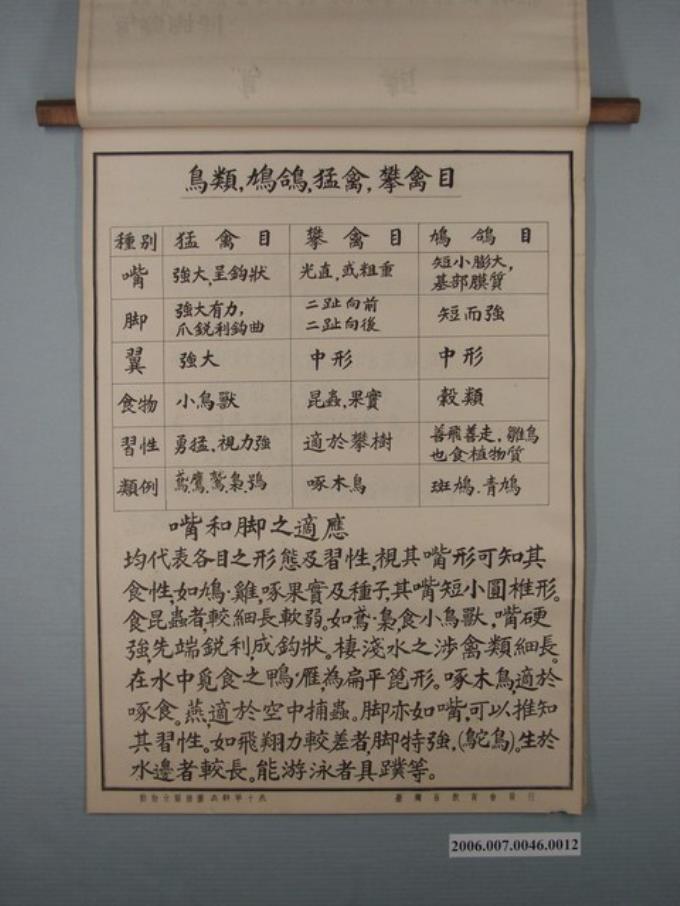 鳥類,鳩鴿,猛禽,攀禽目
種別 猛禽目 攀禽目 鳩鴿目
嘴 強大,呈鈎狀 光直,或粗重 短小膨大,基部膜質
脚 強大有力,爪銳利鈎曲 二趾向前二趾向後 短而強
翼 強大 中形 中形
食物 小鳥獸 昆蟲,果實 穀類
習性 勇猛,視力強 適於攀樹 善飛善走,雛鳥也食植物質
類例 鳶,鷹,鷲,梟,鴞 啄木鳥 斑鳩.青鳩
嘴和脚之適應
均代表各目之形態及習性,視其嘴形可知其
食性,如鳩.雞,啄果實及種子,其嘴短小圓椎形。
食昆蟲者,較細長軟弱。如鳶.梟,食小鳥獸,嘴硬
強,先端銳利,成鈎狀。棲淺水之涉禽類細長。
在水中覓食之鴨.雁,為扁平篦形。啄木鳥,適於
啄食。燕,適於空中捕蟲。脚亦如嘴,可以推知
其習性。如飛翔力較差者,脚特強,(鴕鳥)。生於
水邊者較長。能游泳者具蹼等。
臺灣省教育會發行
2006.007.0046.0012